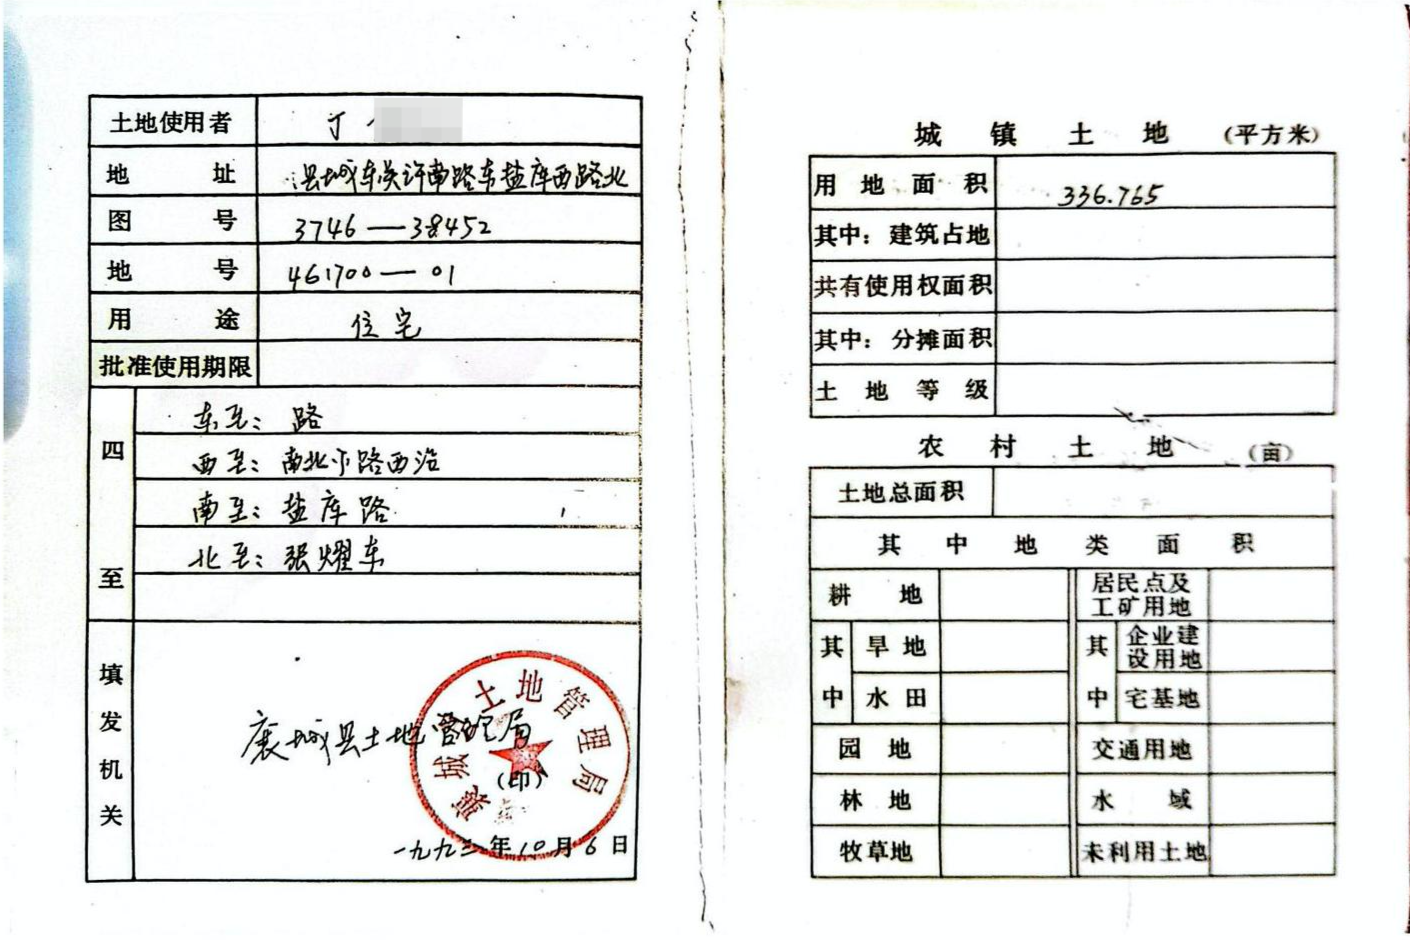 土地使用者 丁
地址 县城东关许南路东盐库西路北
图号 3746—38452
地号 461700—01
用途 住宅
批准使用期限
四至
东至：路
西至：南北小路西沿
南至：盐库路
北至：张耀东
填发机关
襄城县土地管理局
（印）
襄城县土地管理局
一九九三年10月6日
城镇土地（平方米）
用地面积 336.765
其中：建筑占地
共有使用权面积
其中：分摊面积
土地等级
农村土地（亩）
土地总面积
其中地类面积
耕地 居民点及工矿用地
其中 旱地 其中 企业建设用地
水田 宅基地
园地 交通用地
林地 水域
牧草地 未利用土地